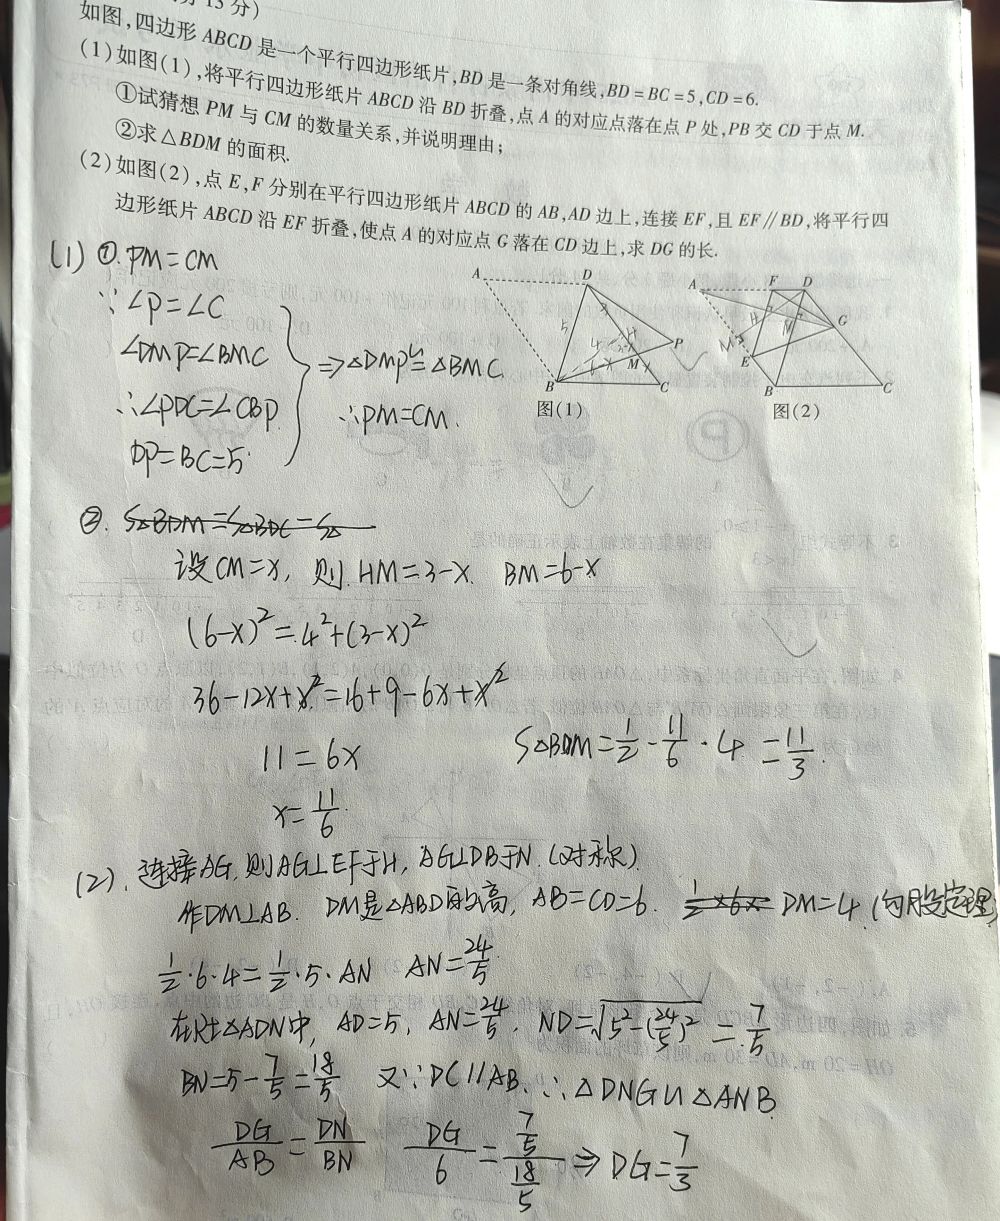 13分)
如图,四边形 ABCD 是一个平行四边形纸片,BD 是一条对角线,BD=BC=5,CD=6.
(1)如图(1),将平行四边形纸片 ABCD 沿 BD 折叠,点 A 的对应点落在点 P 处,PB 交 CD 于点 M.
①试猜想 PM 与 CM 的数量关系,并说明理由;
②求△BDM 的面积.
(2)如图(2),点 E,F 分别在平行四边形纸片 ABCD 的 AB,AD 边上,连接 EF,且 EF∥BD,将平行四
边形纸片 ABCD 沿 EF 折叠,使点 A 的对应点 G 落在 CD 边上,求 DG 的长.
A D P M B C 5 4
图(1)
A F D G E B C H M N
图(2)
(1) ①. PM=CM
∵ ∠P=∠C
∠DMP=∠BMC
∴∠PDC=∠CBP
DP=BC=5
⇒△DMP≌△BMC
∴PM=CM.
②. S△BDM=S△BDC-S△
设CM=x, 则 HM=3-x. BM=6-x
(6-x)²=4²+(3-x)²
36-12x+x²=16+9-6x+x²
11=6x
x=11/6
S△BDM=1/2·11/6·4=11/3
(2). 连接AG, 则AG⊥EF于H, AG⊥DB于N.(对称)
作DM⊥AB. DM是△ABD的高, AB=CD=6. 1/2×6× DM=4 (勾股定理
1/2·6·4=1/2·5·AN AN=24/5
在Rt△ADN中, AD=5, AN=24/5. ND=√5²-(24/5)² =7/5
BN=5-7/5=18/5 又∵DC∥AB. ∴△DNG∽△ANB
DG/AB=DN/BN DG/6=7/5/18/5 ⇒DG=7/3